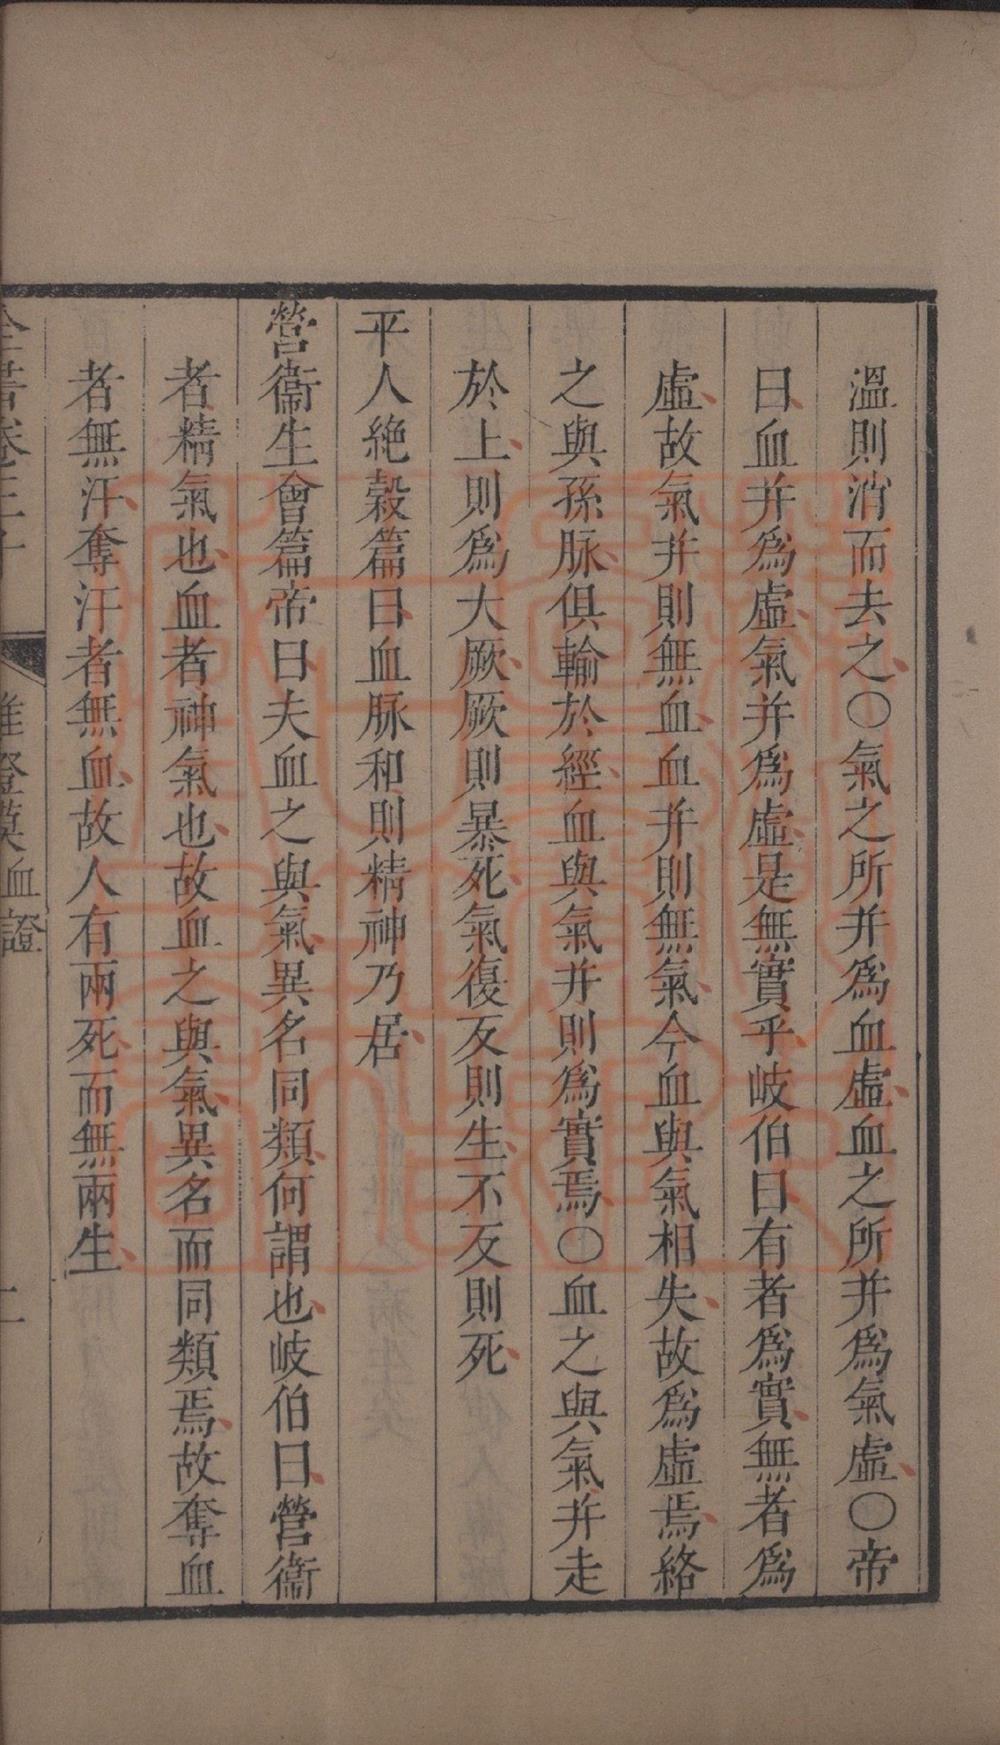 溫則消而去之○氣之所并爲血虛血之所并爲氣虛○帝
曰血并爲虛氣并爲虛是無實乎岐伯曰有者爲實無者爲
虛故氣并則無血血并則無氣今血與氣相失故爲虛焉絡
之與孫脉俱輸於經血與氣并則爲實焉○血之與氣并走
於上則爲大厥厥則暴死氣復反則生不反則死
平人絶穀篇曰血脉和則精神乃居
營衞生會篇帝曰夫血之與氣異名同類何謂也岐伯曰營衞
者精氣也血者神氣也故血之與氣異名而同類焉故奪血
者無汗奪汗者無血故人有兩死而無兩生
全書卷三十 雜證謨血證